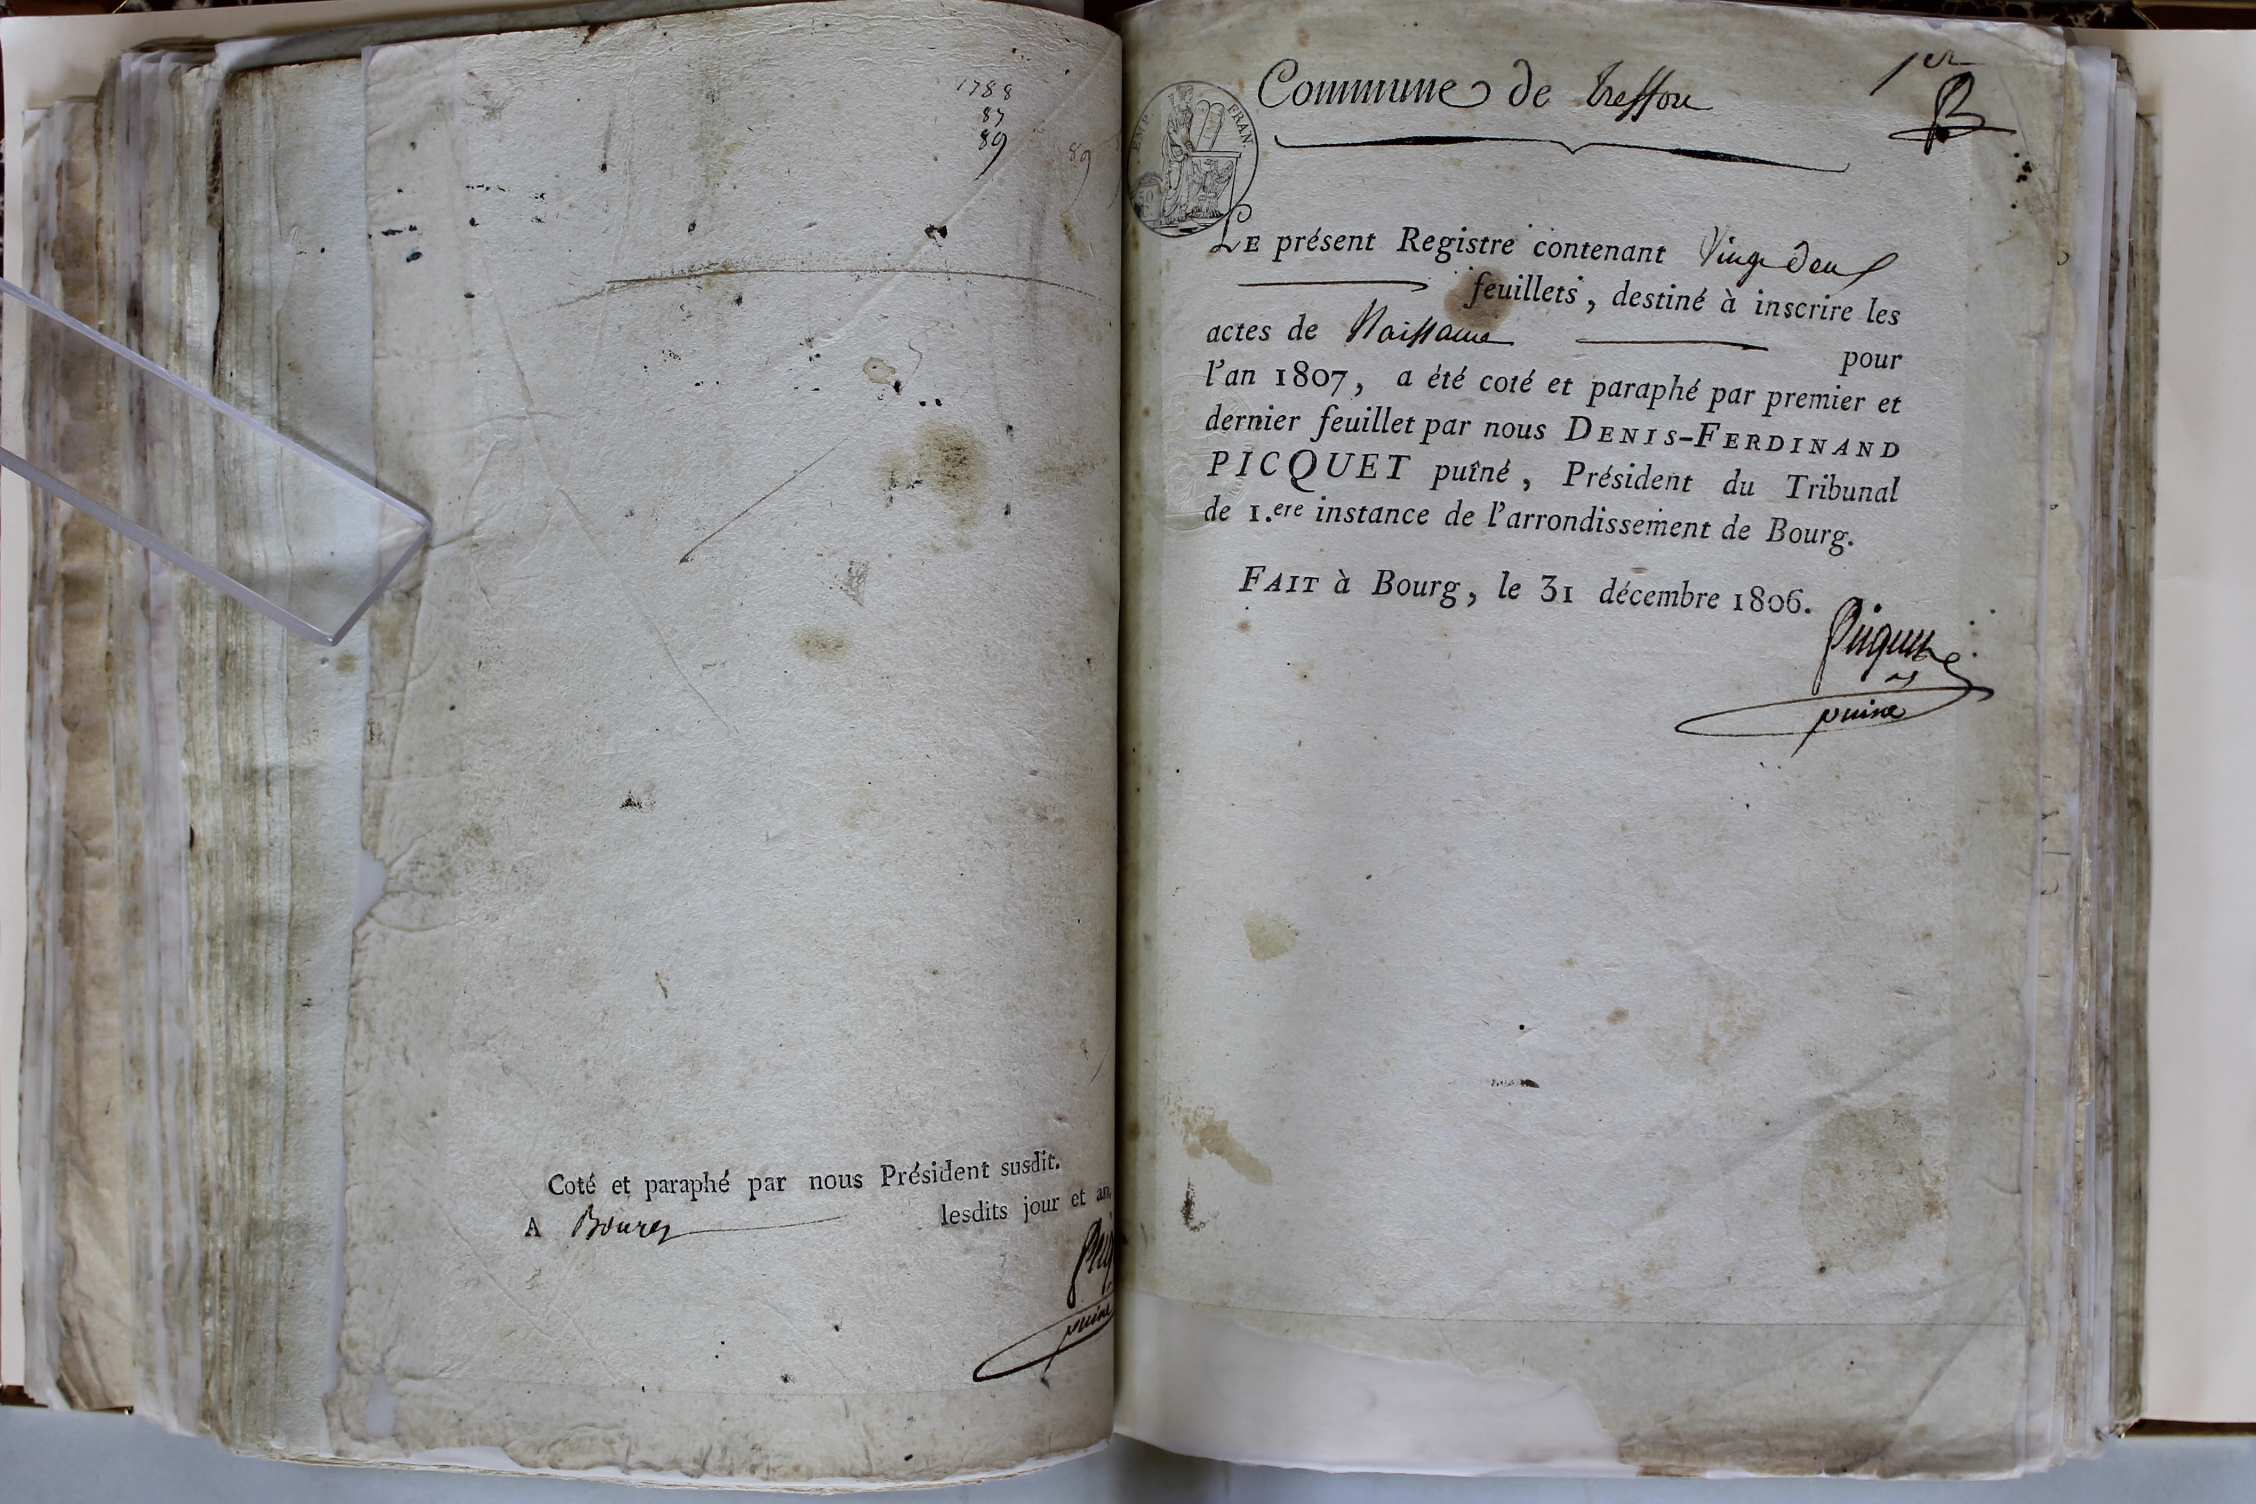 1788
87
89
89
Coté et paraphé par nous Président susdit.
A Bourg lesdits jour et an.
puiné
1er
Commune de Treffort
EMP. FRAN
LE présent Registre contenant Vingt Deux
feuillets, destiné à inscrire les
actes de Naissance pour
l'an 1807, a été coté et paraphé par premier et
dernier feuillet par nous DENIS-FERDINAND
PICQUET puîné, Président du Tribunal
de 1.ere instance de l'arrondissement de Bourg.
FAIT à Bourg, le 31 décembre 1806.
Picquet
puiné